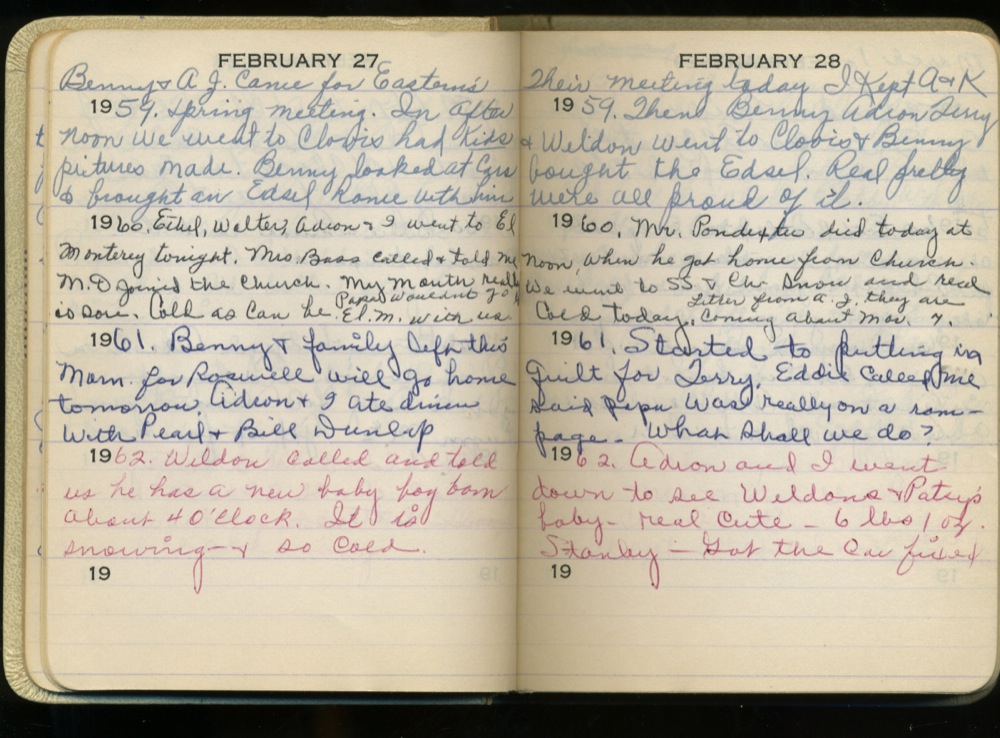 FEBRUARY 27
Benny & A J. Came for Eastern's
1959. Spring meeting. In after
noon we went to Clovis had Kids
pictures made. Benny looked at Cars
& brought an Edsel home with him
1960. Ethel, Walter, Adron & I went to El
Monterey tonight. Mrs. Bass called & told me
M.D joined the Church. My mouth really
Papa wouldnt go to
is sore. Cold as Can be. El. M. with us.
1961. Benny & family left this
Morn. for Roswell will go home
tomorrow. Adron & I ate dinner
with Pearl & Bill Dunlap
1962. Weldon Called and told
us he has a new baby boy born
about 4 O'Clock. It is
snowing - & so Cold.
19
FEBRUARY 28
Their meeting today I Kept A & K
1959. Then Benny Adron Terry
& Weldon went to Clovis & Benny
bought the Edsel. Real pretty
we're all proud of it.
1960. Mr. Pondexter died today at
noon, when he got home from Church.
We went to SS & Ch. Snow and real
Letter from A. J. they are
Cold today. Coming about Mar. 7.
1961. Started to putting in
Quilt for Terry. Eddie Called me
said Papa was really on a ram-
page. What shall we do?
1962. Adron and I went
down to see Weldons & Patsy's
baby - real Cute - 6 lbs 1 oz.
Stanley - Got the Car fixed
19